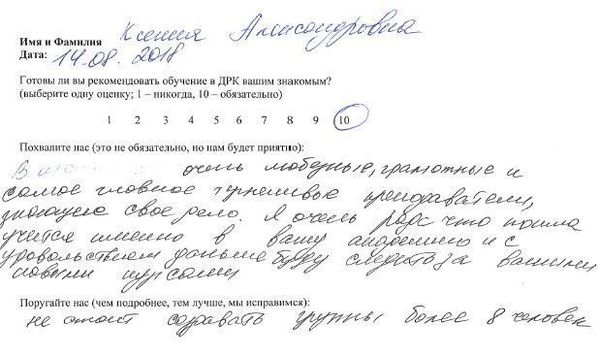 Имя и Фамилия Ксения Александровна
Дата: 14.08.2018
Готовы ли вы рекомендовать обучение в ДРК вашим знакомым?
(выберите одну оценку; 1 – никогда, 10 – обязательно)
1 2 3 4 5 6 7 8 9 10
Похвалите нас (это не обязательно, но нам будет приятно):
В очень любезные, грамотные и
самое главное терпеливые преподаватели,
знающие свое дело. Я очень рада что пошла
учится именно в вашу академию и с
удовольствием дальше буду следить за вашими
новыми курсами
Поругайте нас (чем подробнее, тем лучше, мы исправимся):
не стоит создавать группы более 8 человек